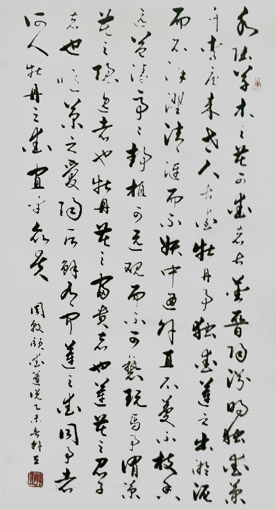 水陸草木之花可愛者甚蕃晉陶淵明獨愛菊
自李唐來世人甚愛牡丹予獨愛蓮之出淤泥
而不染濯清漣而不妖中通外直不蔓不枝香
遠益清亭亭靜植可遠觀而不可褻玩焉予謂菊
花之隱逸者也牡丹花之富貴者也蓮花之君子
者也噫菊之愛陶後鮮有聞蓮之愛同予者
何人牡丹之愛宜乎眾矣
周敦頤愛蓮說乙未